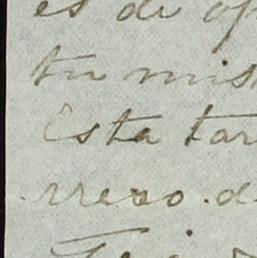 es de op
tu mis
Esta tar
rreo. d